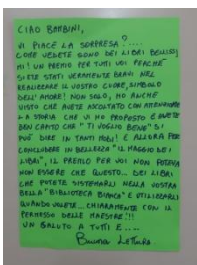 CIAO BAMBINI,
VI PIACE LA SORPRESA ?.....
COME VEDETE SONO DEI LIBRI BELLISSI
MI! UN PREMIO PER TUTTI VOI PERCHÉ
SIETE STATI VERAMENTE BRAVI NEL
REALIZZARE IL VOSTRO CUORE, SIMBOLO
DELL'AMORE! NON SOLO, HO ANCHE
VISTO CHE AVETE ASCOLTATO CON ATTENZIONE
LA STORIA CHE VI HO PROPOSTO E AVETE
BEN CAPITO CHE "TI VOGLIO BENE" SI
PUÒ DIRE IN TANTI MODI! E ALLORA PER
CONCLUDERE IN BELLEZZA "IL MAGGIO DEI
LIBRI", IL PREMIO PER VOI NON POTEVA
NON ESSERE CHE QUESTO... DEI LIBRI
CHE POTETE SISTEMARLI NELLA VOSTRA
BELLA "BIBLIOTECA BIANCA" E UTILIZZARLI
QUANDO VOLETE... CHIARAMENTE CON IL
PERMESSO DELLE MAESTRE!!!
UN SALUTO A TUTTI E.....
Buona Lettura.